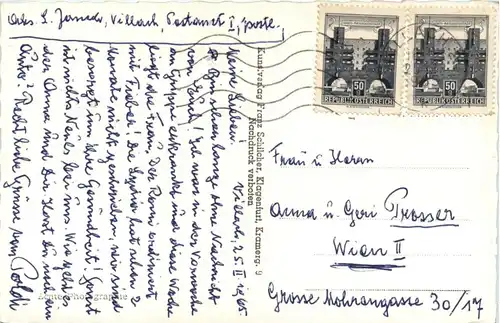 Abs. L. Janech, Villach, Postamt I, postl.
Villach, 25. II. 1965
Meine Lieben.
Bin schon lange ohne Nachricht
von Euch! Ich war in der Vorwoche
an Grippe erkrankt und diese Woche
liegt die Frau Dr. Romi ordiniert
mit Fieber! Die Lydia hat schon 2
Monate nicht geschrieben, wir sind
besorgt um ihre Gesundheit! Sonst
ist nichts Neues bei uns. Wie geht es
der Anna und Dir Horst Du von den
Recht liebe Grüsse vom Poldi
Echte Photographie
Kunstverlag Franz Schilcher, Klagenfurt, Kramerg. 9
Nachdruck verboten
50
REPUBLIK ÖSTERREICH
50
REPUBLIK ÖSTERREICH
Frau u Herrn
Anna u. Geri Prosser
Wien II
Grosse Mohrengasse 30/17